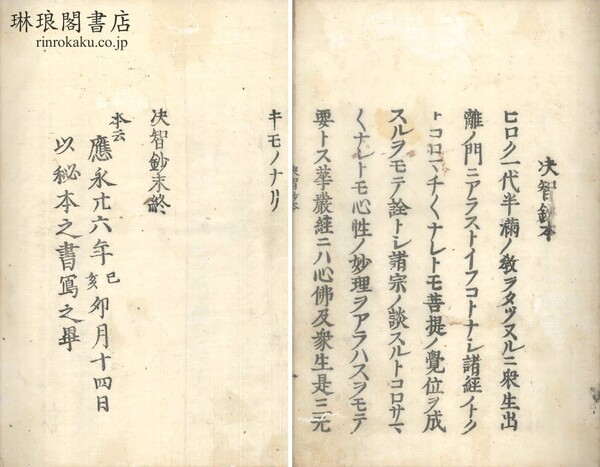 琳琅閣書店
rinrokaku.co.jp
决智鈔本
ヒロク一代半滿ノ教ヲタツヌルニ衆生出
離ノ門ニアラストイフコトナシ諸經ノトク
トコロマチ〱ナレトモ菩提ノ覺位ヲ成
スルヲモテ詮トシ諸宗ノ談スルトコロサマ
〱ナレトモ心性ノ妙理ヲアラハスヲモテ
要トス華嚴經ニハ心佛及衆生是三无
决智鈔本
キモノナリ
决智鈔末終
本云
應永廿六年己亥卯月十四日
以秘本之書寫之畢